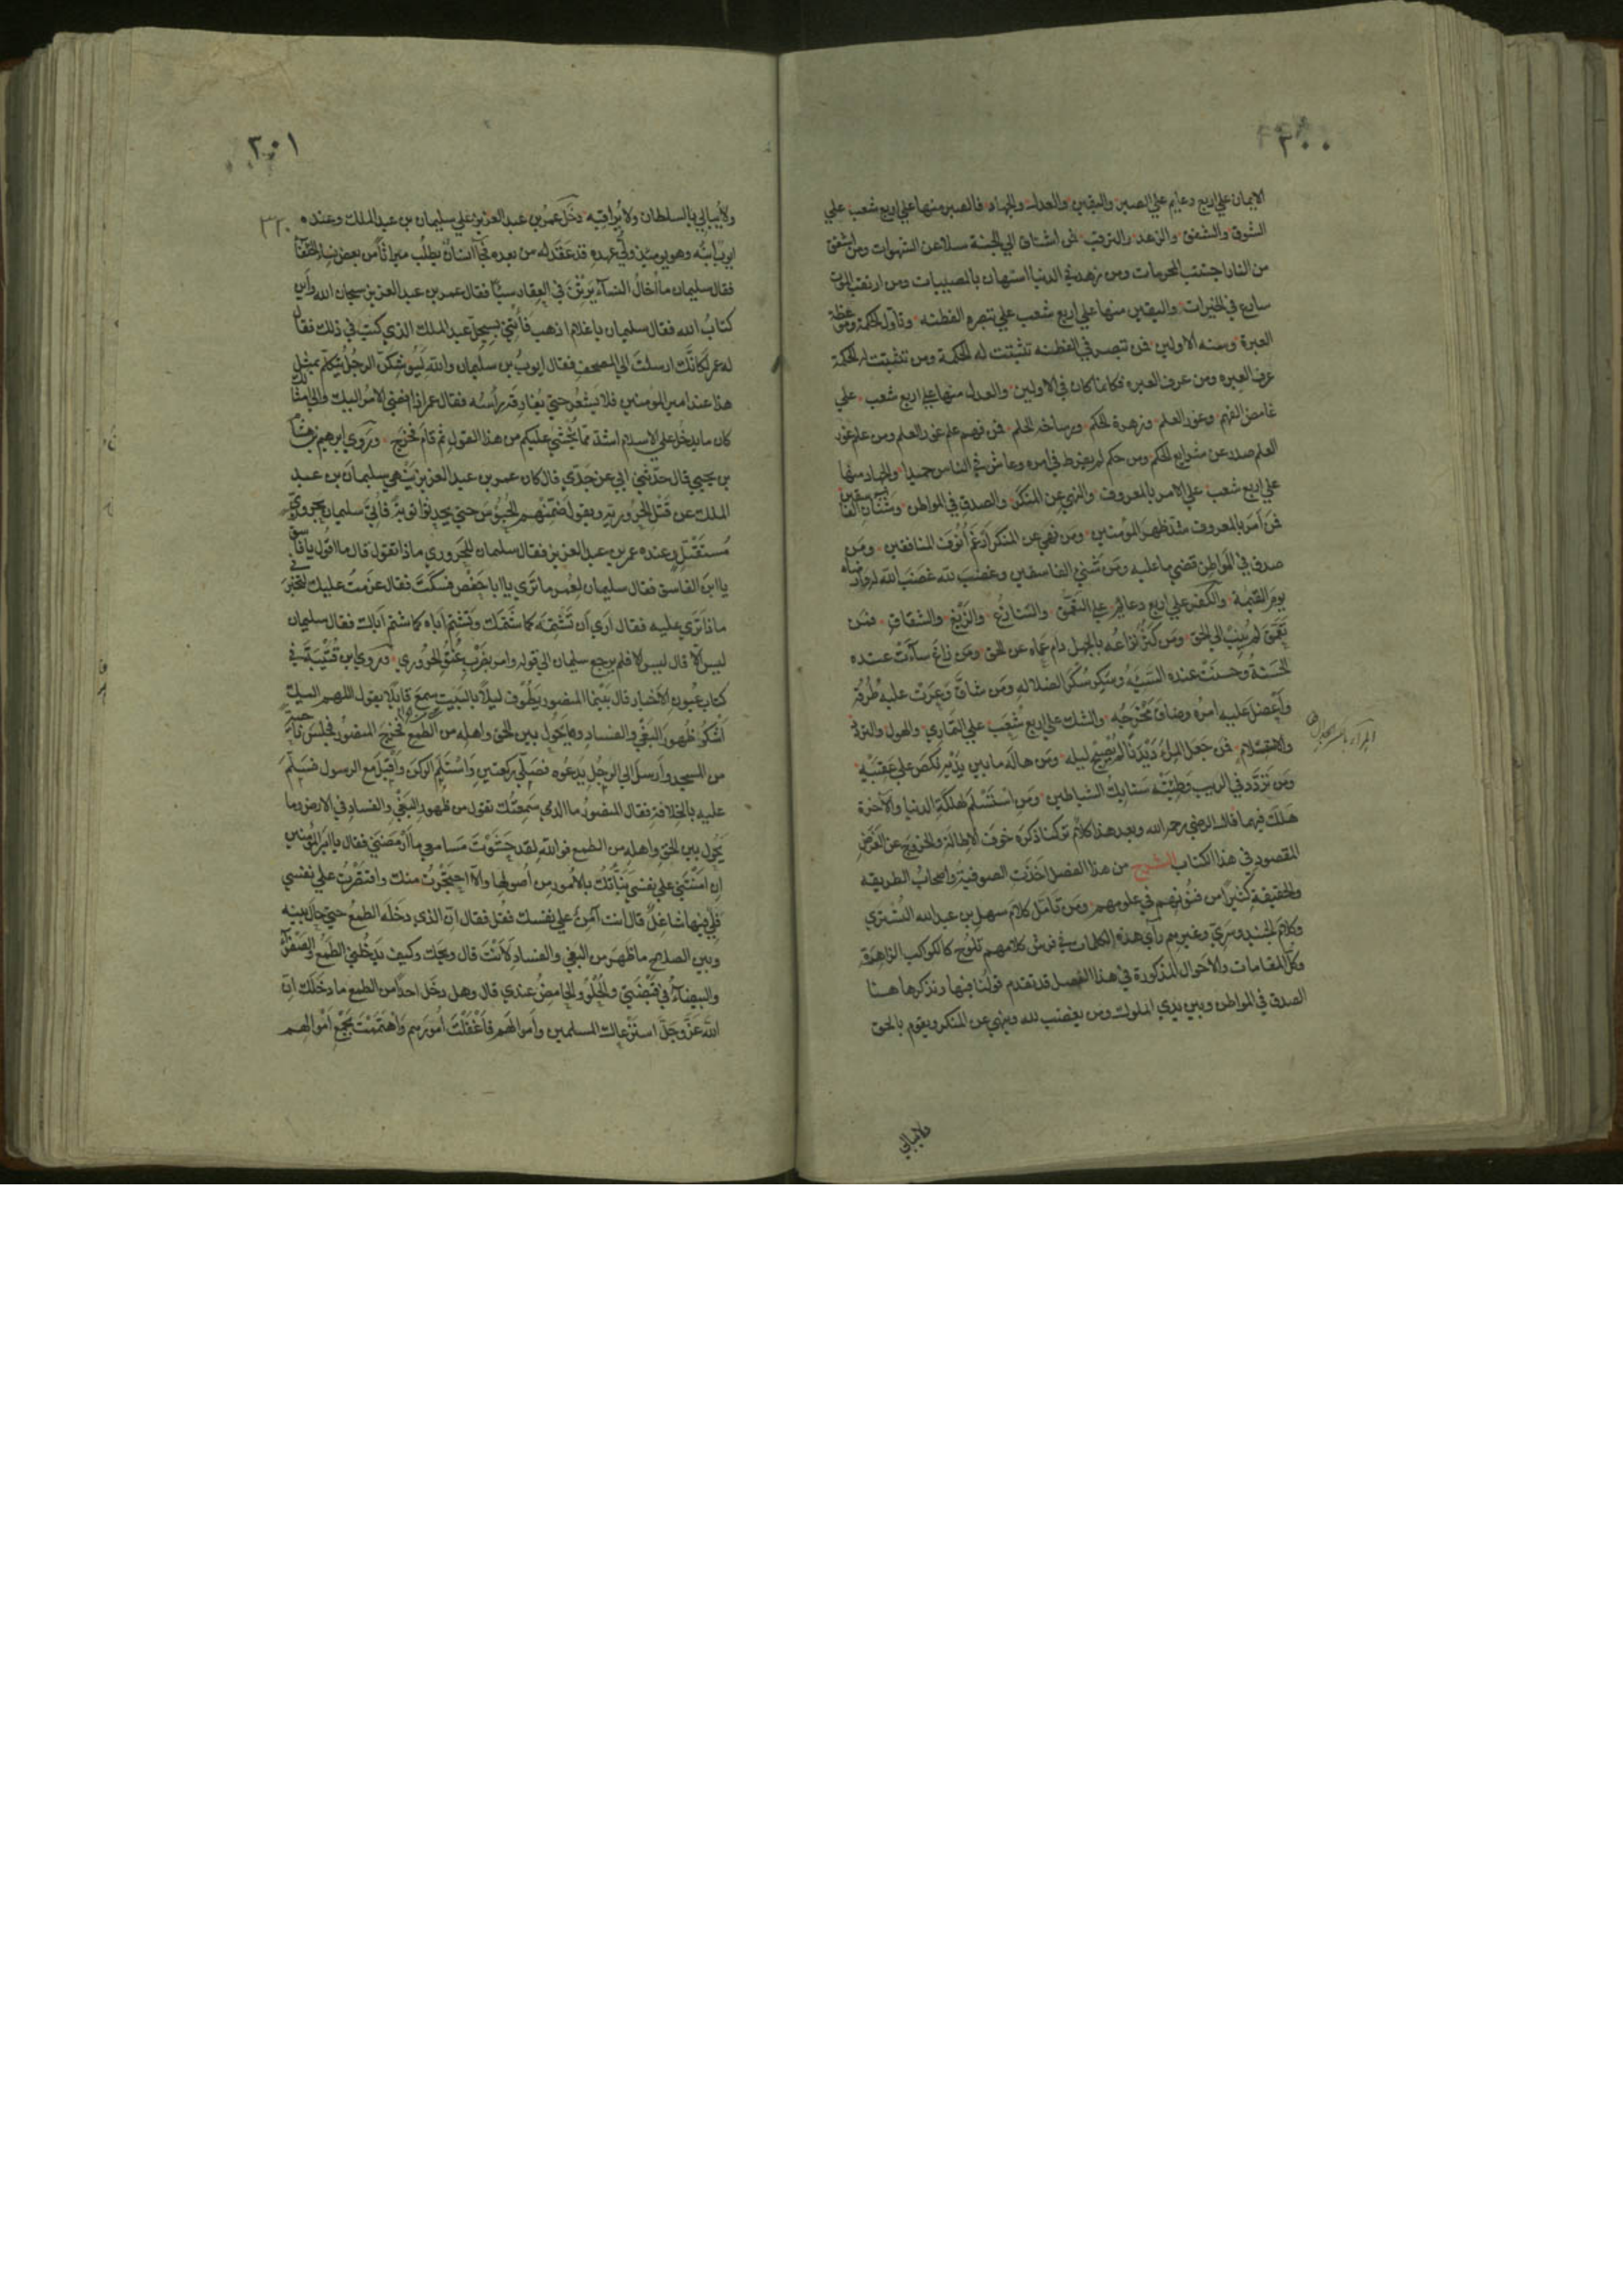 ٣٠٠
الايمان علي اربع دعايم علي الصبر واليقين والعدل والجهاد فالصبر منها علي اربع شعب علي
الشوق والشفق والزهد والترقب فمن اشتاق الي الجنة سلا عن الشهوات ومن اشفق
من النار اجتنب المحرمات ومن زهد في الدنيا استهان بالمصيبات ومن ارتقب الموت
سارع في الخيرات واليقين منها علي اربع شعب علي تبصره الفطنه وتأول الحكمة وموعظة
العبرة وسنه الاولين فمن تبصر في الفطنه تثبتت له الحكمة ومن تثبتت له الحكمة
عرف العبره ومن عرف العبره فكانما كان في الاولين والعدل منها علي اربع شعب علي
غامض الفهم وغور العلم وزهرة الحكم ورساخه الحلم فمن فهم علم غور العلم ومن علم غور
العلم صدر عن شرايع الحكم ومن حكم لم يفرط في امره وعاش في الناس حميدا والجهاد منها
علي اربع شعب علي الامر بالمعروف والنهي عن المنكر والصدق في المواطن وشنآن الفاسقين
فمن أمر بالمعروف شد ظهر المؤمنين ومن نهي عن المنكر أرغم أنوف المنافقين ومن
صدق في المواطن قضي ما عليه ومن شني الفاسقين وغضب لله غضب الله له وارضاه
يوم القيمة والكفر علي اربع دعايم علي التعمق والتنازع والزيغ والشقاق فمن
تعمق لم ينب الي الحق ومن كثر نزاعه بالجهل دام عماه عن الحق ومن زاغ ساءت عنده
الحسنة وحسنت عنده السيئه وسكر سكر الضلاله ومن شاق وعرت عليه طرقه
وأعضل عليه امره وضاق مخرجه والشك علي اربع شعب علي التماري والهول والتردد
والاستسلام فمن جعل المراء ديدنا لم يصبح ليله ومن هاله ما بين يديه نكص علي عقبيه
ومن تردد في الريب وطئته سنابك الشياطين ومن استسلم لهلكة الدنيا والآخرة
هلك فيهما قال الرضي رحمه الله وبعد هذا كلام تركنا ذكره خوف الاطالة والخروج عن الغرض
المقصود في هذا الكتاب الشرح من هذا الفصل اخذت الصوفية واصحاب الطريقه
والحقيقة كثيرا من فنونهم في علومهم ومن تأمل كلام سهل بن عبد الله التستري
وكلام الجنيد وسري وغيرهم رأي هذه الكلمات في فرش كلامهم تلوح كالكواكب الزاهرة
وكل المقامات والاحوال المذكورة في هذا الفصل قد تقدم قولنا فيها ونذكرها هنا
الصدق في المواطن وبين يدي الملوك ومن يغضب لله وينهي عن المنكر ويقوم بالحق
ولا يبالي
٣٠١
ولا يبالي بالسلطان ولا يراقبه دخل عمر بن عبد العزيز علي سليمان بن عبد الملك وعنده
ايوب ابنه وهو يومئذ ولي عهده قد عقد له من بعده فجآ انسان يطلب ميراثا من بعض نساء الخلفآ
فقال سليمان ما اخال النسآء يرثن في العقار شيئا فقال عمر بن عبد العزيز سبحان الله واين
كتاب الله فقال سليمان يا غلام اذهب فأتني بسجل عبد الملك الذي كتب في ذلك فقال
له عمر لكانك ارسلت الي المصحف فقال ايوب بن سليمان والله ليوشكن الرجل يتكلم بمثل
هذا عند امير المومنين فلا يشعر حتي يفارقه رأسه فقال عمر اذا افضي الامر اليك والي امثالك
كان ما يدخل علي الاسلام اشد مما يخشي عليكم من هذا القول ثم قام فخرج وروي ابرهيم بن هشام
بن يحيي قال حدثني ابي عن جدي قال كان عمر بن عبد العزيز ينهي سليمان بن عبد
الملك عن قتل الحرورية ويقول ضمنهم الحبوس حتي يحدثوا توبة فأتي سليمان بحروري
مستقتل وعنده عمر بن عبد العزيز فقال سليمان للحروري ماذا تقول قال ما اقول يا فاسق
يا ابن الفاسق فقال سليمان لعمر ما تري يا ابا حفص فسكت فقال عزمت عليك لتخبرني
ماذا تري عليه فقال اري ان تشتمه كما شتمك وتشتم اباه كما شتم اباك فقال سليمان
ليس الا قال ليس الا فلم يرجع سليمان الي قوله وامر بضرب عنق الحروري وروي ابن قتيبة في
كتاب عيون الاخبار قال بينما المنصور يطوف ليلا بالبيت سمع قايلا يقول اللهم اليك
أشكو ظهور البغي والفساد وما يحول بين الحق واهله من الطمع فخرج المنصور فجلس ناحية
من المسجد وارسل الي الرجل يدعوه فصلي ركعتين واستلم الركن واقبل مع الرسول فسلم
عليه بالخلافة فقال المنصور ما الذي سمعتك تقول من ظهور البغي والفساد في الارض وما
يحول بين الحق واهله من الطمع فوالله لقد حشوت مسامعي ما ارمضني فقال يا امير المومنين
ان امنتني علي نفسي انبأتك بالامور من أصولها والا احتجزت منك واقتصرت علي نفسي
فلي فيها شاغل قال انت آمن علي نفسك فقل فقال ان الذي دخله الطمع حتي حال بينه
وبين اصلاح ما ظهر من البغي والفساد لأنت قال ويحك وكيف يدخلني الطمع والصفرآء
والبيضآء في قبضتي والحلو والحامض عندي قال وهل دخل احدا من الطمع ما دخلك ان
الله عز وجل استرعاك المسلمين واموالهم فأغفلت امورهم واهتممت بجمع اموالهم